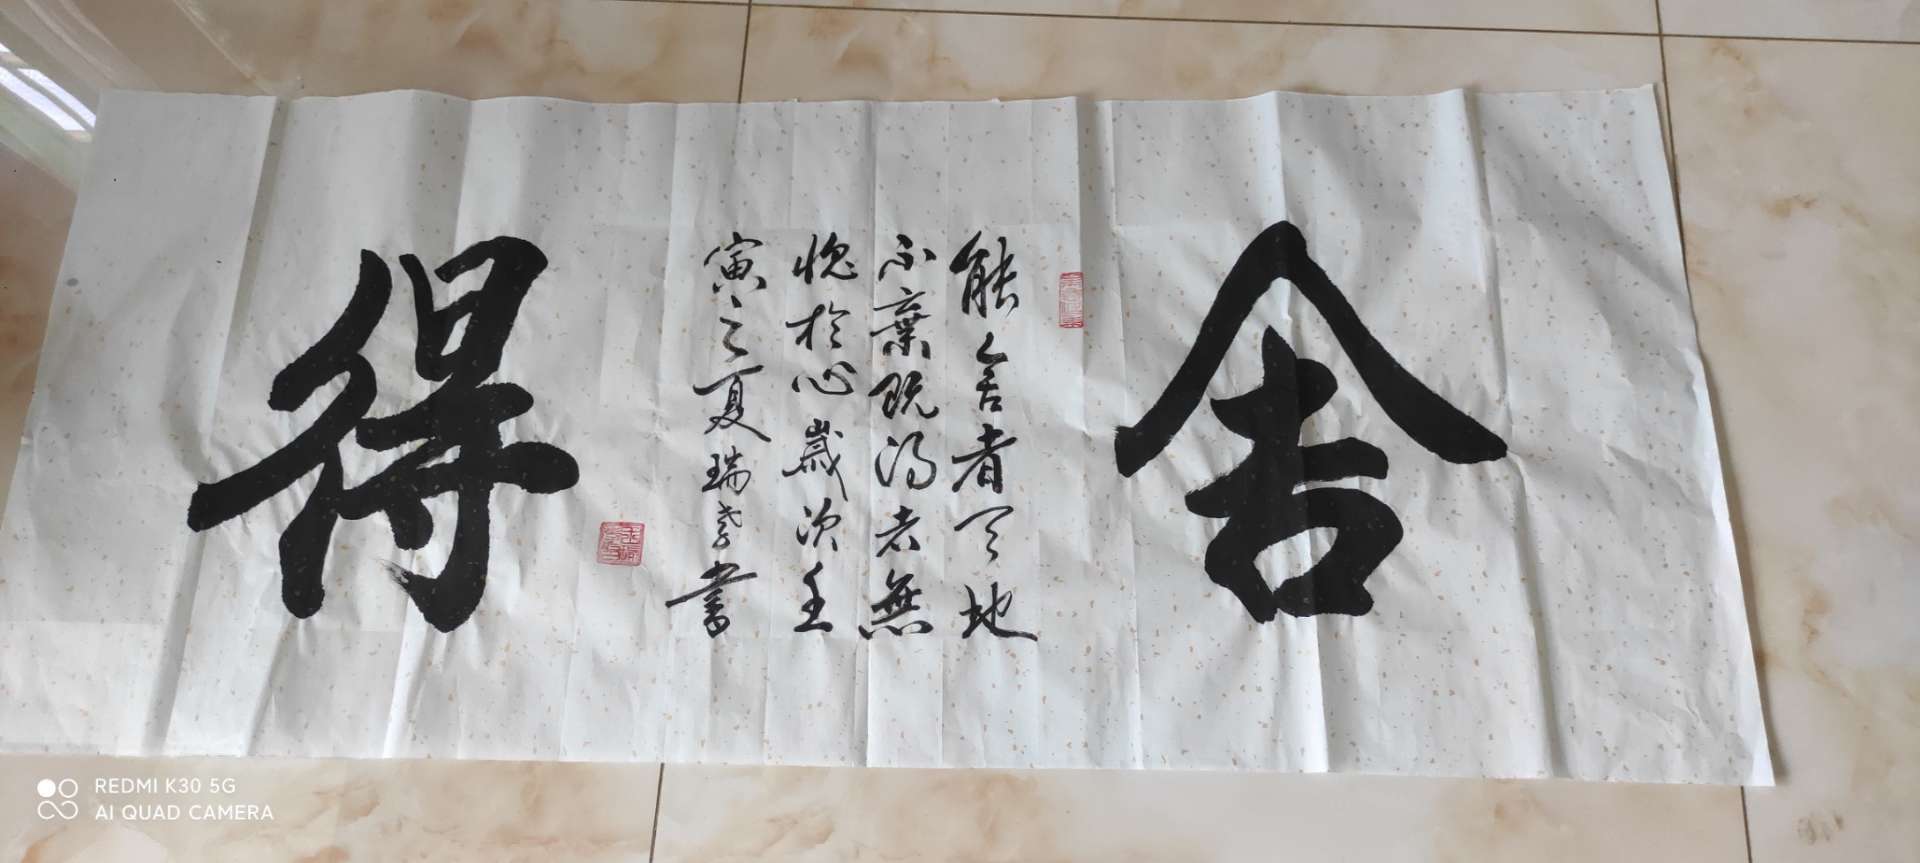 舍
能舍者天地
不棄既得者無
愧於心歲次壬
寅之夏瑞孝書
得
REDMI K30 5G
AI QUAD CAMERA